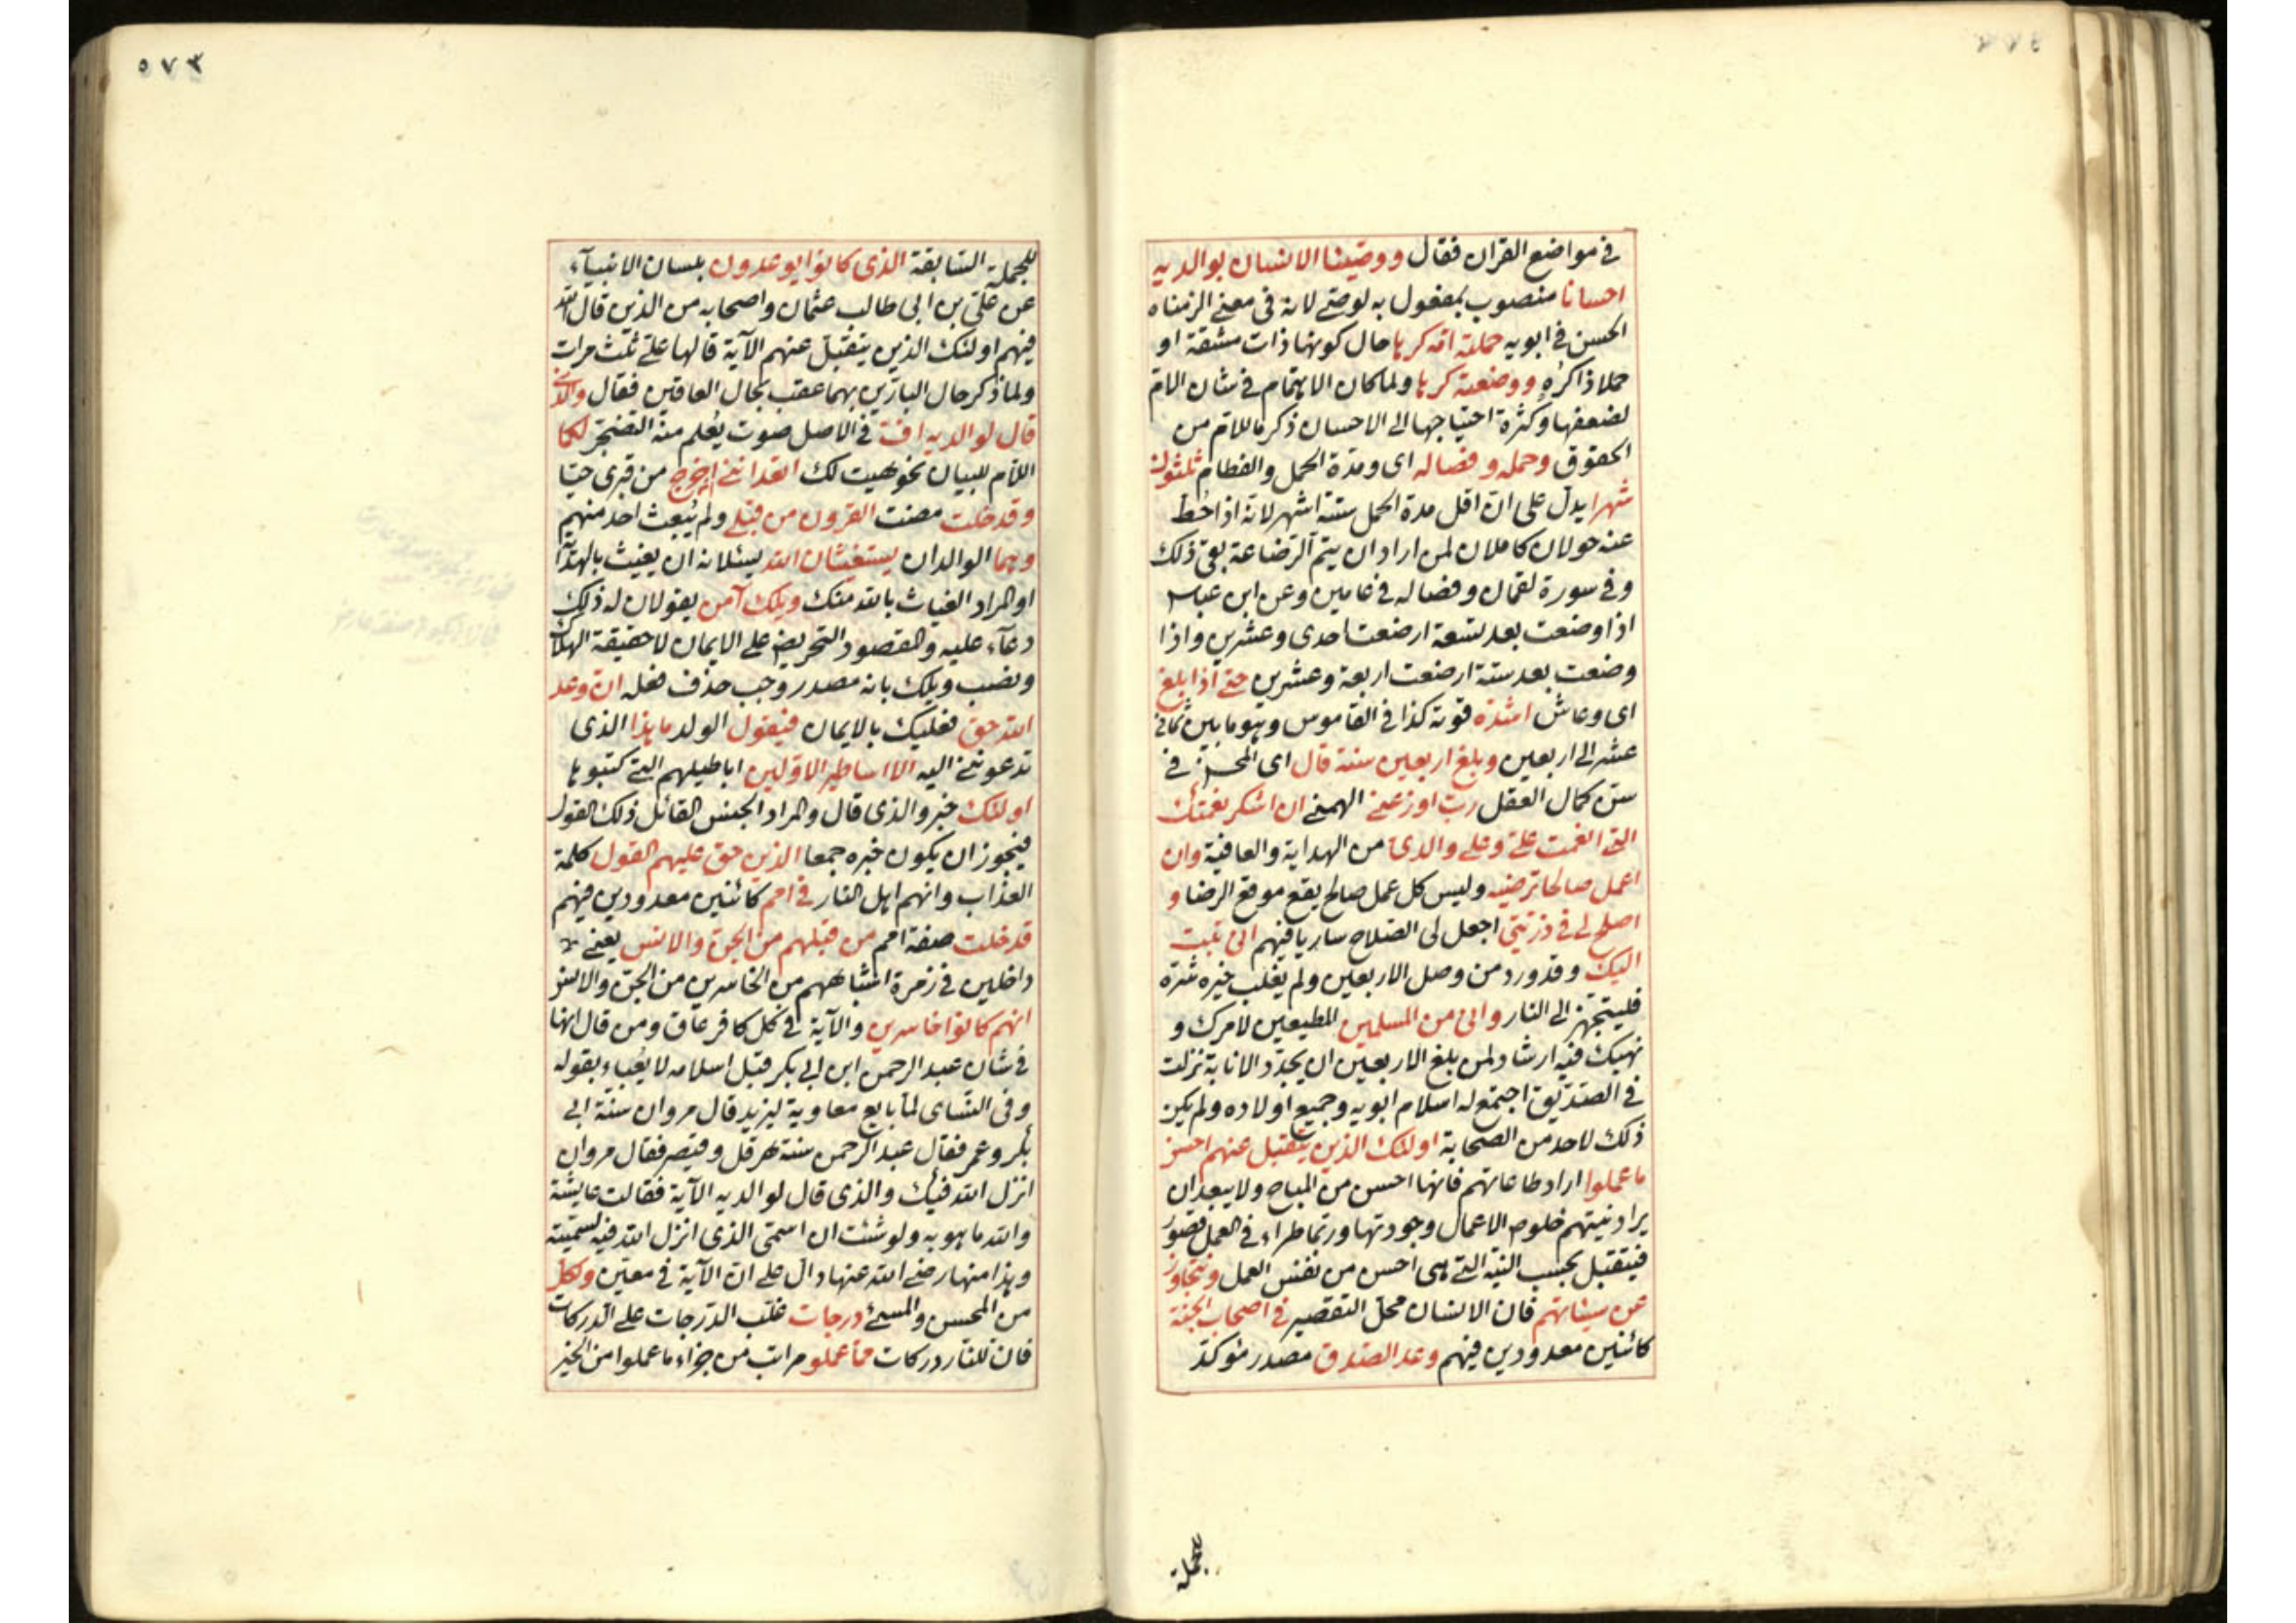 في مواضع القران فقال ووصينا الانسان بوالديه
احسانا منصوب بمفعول به لوصى لانه في معنى الزمناه
الحسن في ابويه حملته امه كرها حال كونها ذات مشقة او
حملا ذا كُره ووضعته كرها ولما كان الاهتمام في شان الام
لضعفها وكثرة احتياجها الى الاحسان ذكر ما للام من
الحقوق وحمله وفصاله اى ومدة الحمل والفطام ثلثون
شهرا يدل على ان اقل مدة الحمل ستة اشهر لانه اذا حُط
عنه حولان كاملان لمن اراد ان يتم الرضاعة بقى ذلك
وفى سورة لقمان وفصاله في عامين وعن ابن عباس
اذا وضعت بعد تسعة ارضعت احدى وعشرين واذا
وضعت بعد ستة ارضعت اربعة وعشرين حتى اذا بلغ
اى وعاش اشده قوته كذا في القاموس وهو ما بين ثمانى
عشر الى اربعين وبلغ اربعين سنة قال اى المحسن في
سن كمال العقل رب اوزعنى الهمنى ان اشكر نعمتك
التى انعمت على وعلى والدى من الهداية والعافية وان
اعمل صالحا ترضيه وليس كل عمل صالح يقع موقع الرضا و
اصلح لى في ذريتى اجعل لى الصلاح ساريا فيهم انى تبت
اليك وقد ورد من وصل الاربعين ولم يغلب خيره شره
فليتجهز الى النار وانى من المسلمين المطيعين لامرك و
نهيك فيه ارشاد لمن بلغ الاربعين ان يجدد الانابة نزلت
في الصديق اجتمع له اسلام ابويه وجميع اولاده ولم يكن
ذلك لاحد من الصحابة اولئك الذين يتقبل عنهم احسن
ما عملوا اراد طاعاتهم فانها احسن من المباح ولا يبعد ان
يراد نيتهم خلوص الاعمال وجودتها وربما طراء في العمل قصور
فيتقبل بحسب النية التى هى احسن من نفس العمل ونتجاوز
عن سيئاتهم فان الانسان محل التقصير في اصحاب الجنة
كائنين معدودين فيهم وعد الصدق مصدر مؤكد
للجملة
٥٧٣
للجملة السابقة الذى كانوا يوعدون بلسان الانبياء
عن على بن ابى طالب عثمان واصحابه من الذين قال الله
فيهم اولئك الذين يتقبل عنهم الآية قالها على ثلث مرات
ولما ذكر حال البارين بهما عقب بحال العاقين فقال والذى
قال لوالديه اف في الاصل صوت يُعلم منه التضجر لكما
اللام للبيان نحو هيت لك اتعداننى ان اخرج من قبرى حيا
وقد خلت مضت القرون من قبلى ولم يُبعث احد منهم
وهما الوالدان يستغيثان الله يسئلانه ان يغيث بالهداية
او المراد الغياث بالله منك ويلك آمن يقولان له ذلك
دعآء عليه والمقصود التحريض على الايمان لا حقيقة الهلاك
ونصب ويلك بانه مصدر وجب حذف فعله ان وعد
الله حق فعليك بالايمان فيقول الولد ما هذا الذى
تدعوننى اليه الا اساطير الاولين اباطيلهم التى كتبوها
اولئك خبر والذى قال والمراد الجنس القائل ذلك القول
فيجوز ان يكون خبره جمعا الذين حق عليهم القول كلمة
العذاب وانهم اهل النار في امم كائنين معدودين فيهم
قد خلت صفة امم من قبلهم من الجن والانس يعنى
داخلين في زمرة اشباههم من الخاسرين من الجن والانس
انهم كانوا خاسرين والآية في كل كافر عاق ومن قال انها
في شان عبد الرحمن ابن ابى بكر قبل اسلامه لا يُعباء بقوله
وفى النساى لما بايع معاوية ليزيد قال مروان سنة ابى
بكر وعمر فقال عبد الرحمن سنة هرقل وقيصر فقال مروان
انزل الله فيك والذى قال لوالديه الآية فقالت عايشة
والله ما هو به ولو شئت ان اسمى الذى انزل الله فيه لسميته
وهذا منها رضى الله عنها دال على ان الآية في معين ولكل
من المحسن والمسئ درجات غلب الدرجات على الدركات
فان للنار دركات مما عملوا مراتب من جزاء ما عملوا من الخير